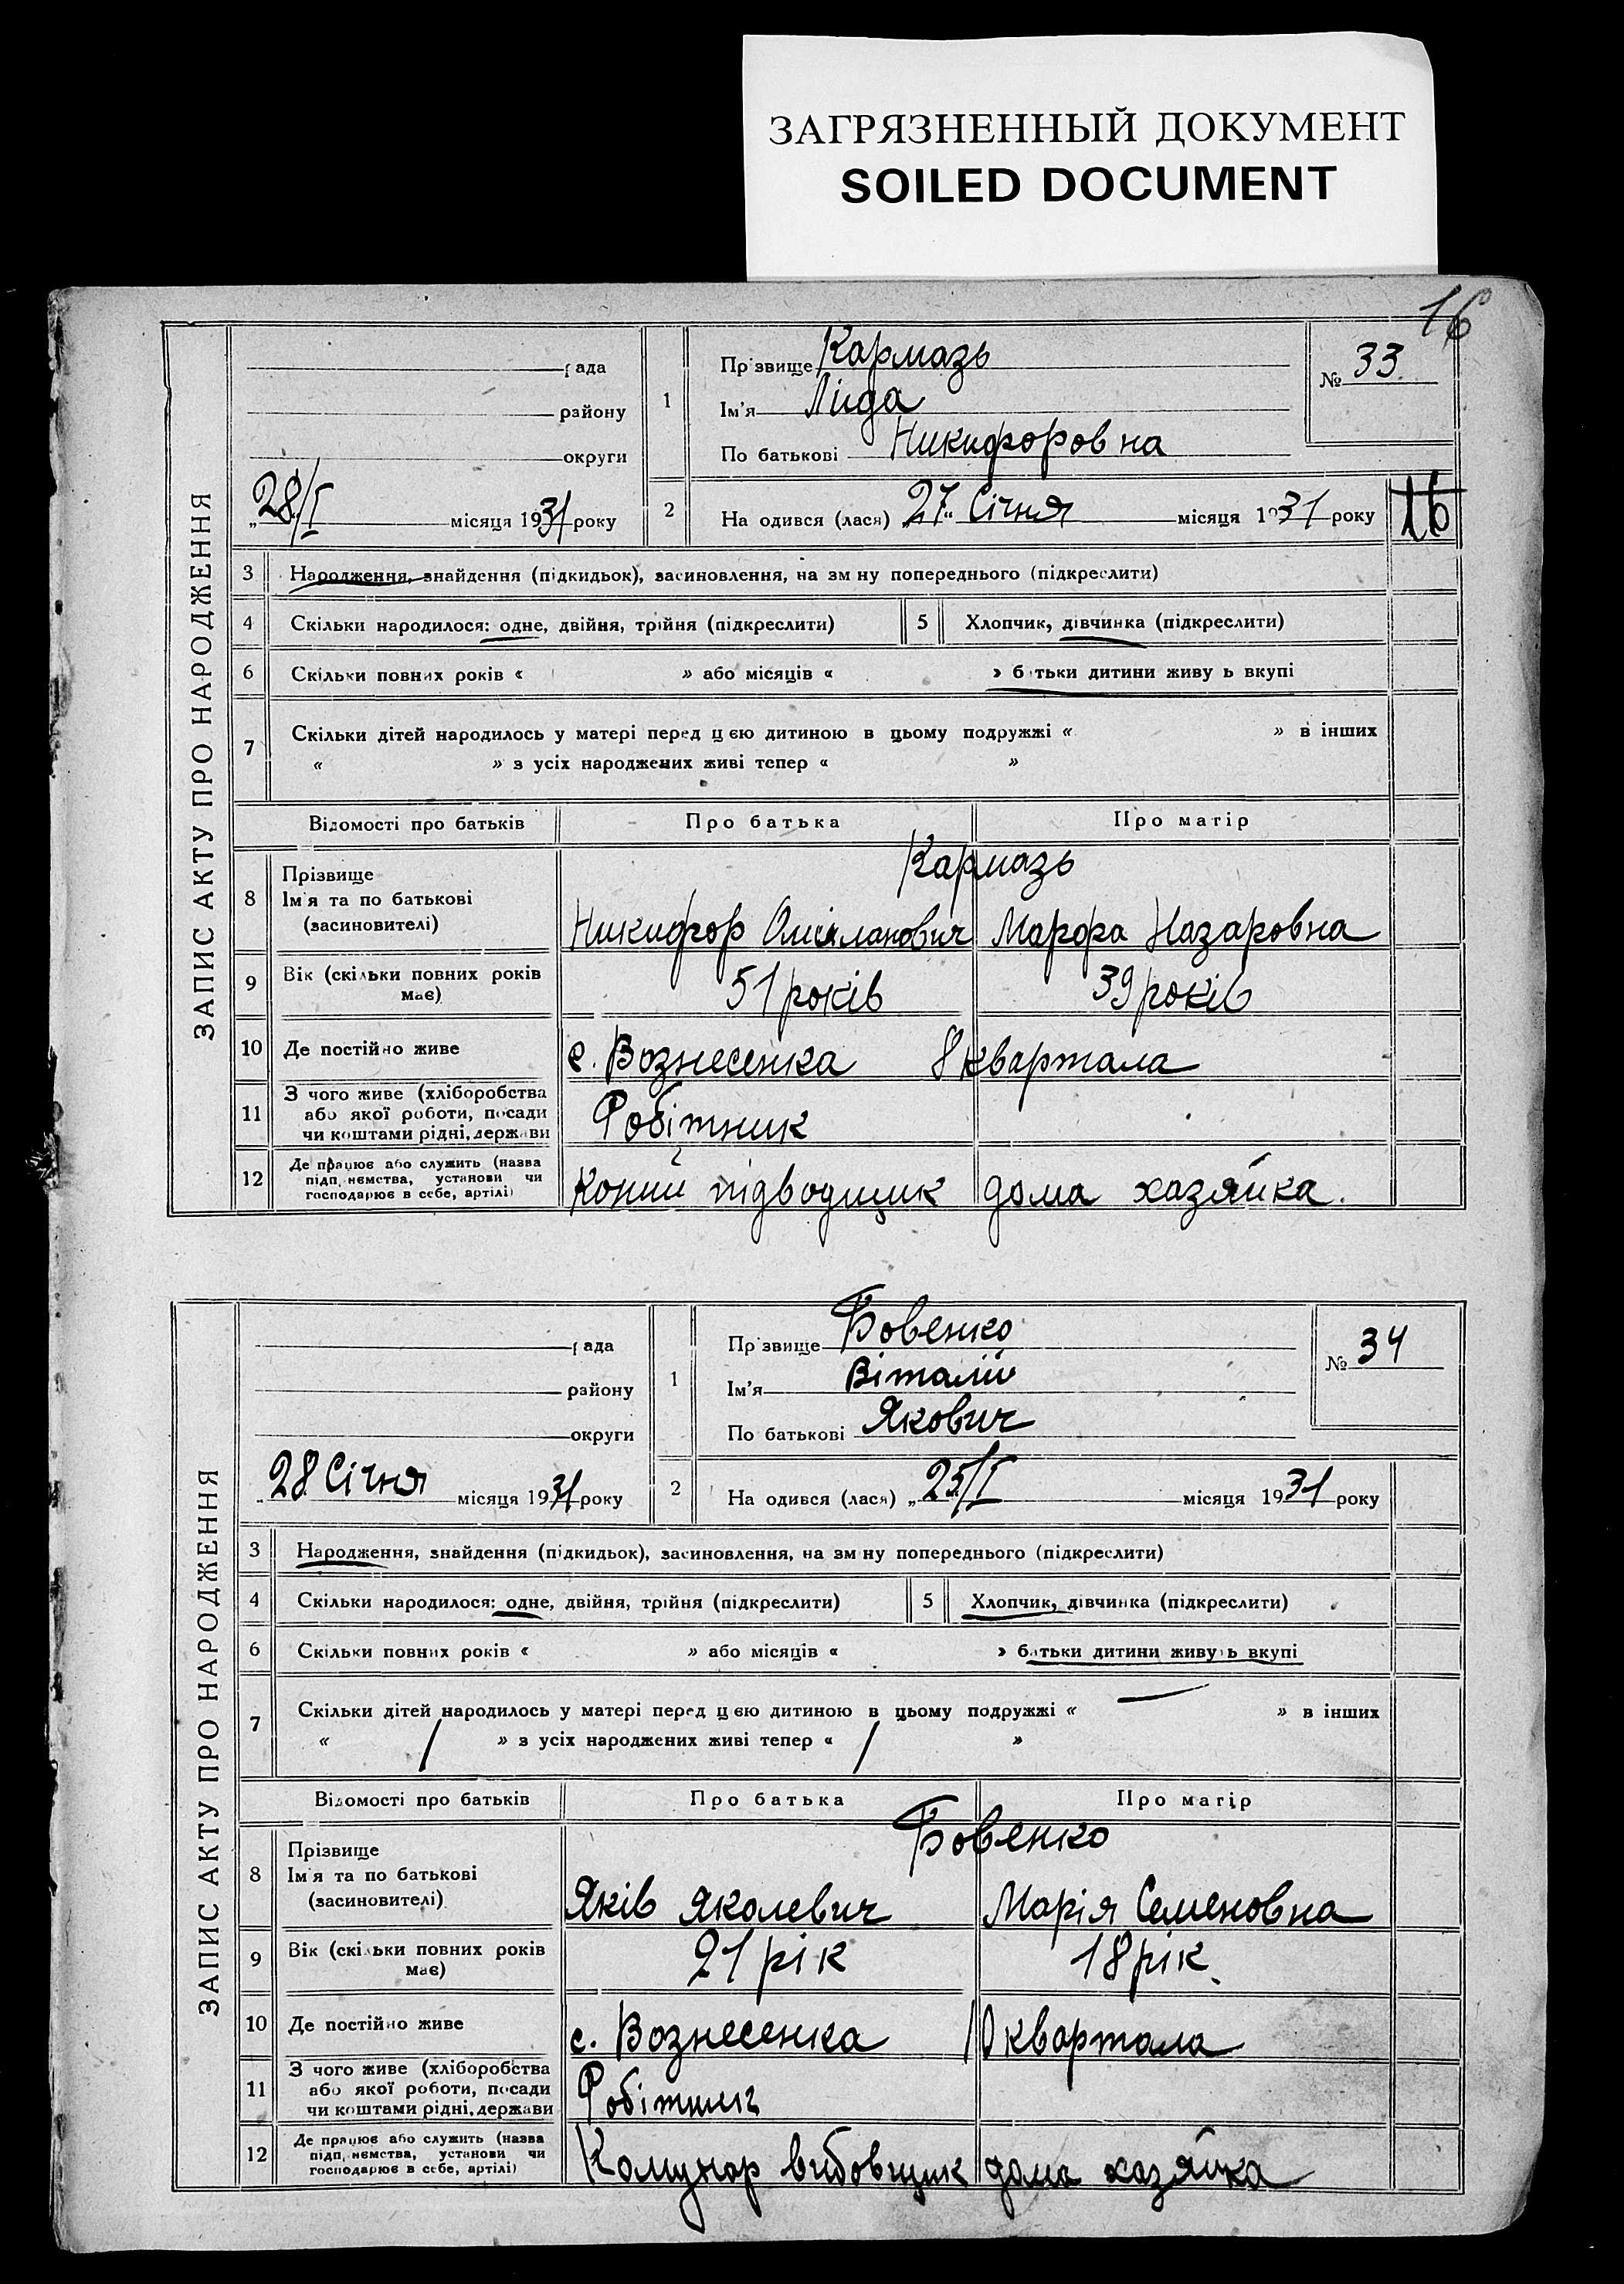 ЗАГРЯЗНЕННЫЙ ДОКУМЕНТ
SOILED DOCUMENT
16
ЗАПИС АКТУ ПРО НАРОДЖЕННЯ
рада
району
округи
„28/I місяця 1931 року
1
Прізвище Кармазь
Ім'я Ліда
По батькові Никифоровна
№ 33.
2
На одився (лася) „27“ Січня місяця 1931 року
16
3 Народження, знайдення (підкидьок), засиновлення, на зм ну попереднього (підкреслити)
4 Скільки народилося: одне, двійня, трійня (підкреслити)
5 Хлопчик, дівчинка (підкреслити)
6 Скільки повних років « » або місяців « » батьки дитини живу ь вкупі
7 Скільки дітей народилось у матері перед цією дитиною в цьому подружжі « » в інших
« » з усіх народжених живі тепер « »
Відомості про батьків Про батька Про матір
8 Прізвище
Ім'я та по батькові
(засиновителі)
Кармазь
Никифор Марфа Назаровна
9 Вік (скільки повних років має)
51 років 39 років
10 Де постійно живе
с. Вознесенка 8 квартала
11 З чого живе (хліборобства
або якої роботи, посади
чи коштами рідні, держави
Робітник
12 Де працює або служить (назва
підп, ємства, установи чи
господарює в себе, артілі)
Коний підводщик дома хазяйка.
ЗАПИС АКТУ ПРО НАРОДЖЕННЯ
рада
району
округи
„28 Січня місяця 1931 року
1
Прізвище Бовенко
Ім'я Віталій
По батькові Якович
№ 34
2
На одився (лася) „25/I місяця 1931 року
3 Народження, знайдення (підкидьок), засиновлення, на зм ну попереднього (підкреслити)
4 Скільки народилося: одне, двійня, трійня (підкреслити)
5 Хлопчик, дівчинка (підкреслити)
6 Скільки повних років « » або місяців « » батьки дитини живуть вкупі
7 Скільки дітей народилось у матері перед цією дитиною в цьому подружжі « — » в інших
« / » з усіх народжених живі тепер « / »
Відомості про батьків Про батька Про матір
8 Прізвище
Ім'я та по батькові
(засиновителі)
Бовенко
Яків Яколевич Марія Семеновна
9 Вік (скільки повних років має)
21 рік 18 рік
10 Де постійно живе
с. Вознесенка 10 квартала
11 З чого живе (хліборобства
або якої роботи, посади
чи коштами рідні, держави
Робітник
12 Де працює або служить (назва
підп, ємства, установи чи
господарює в себе, артілі)
Комунар вибовщик дома хазяйка